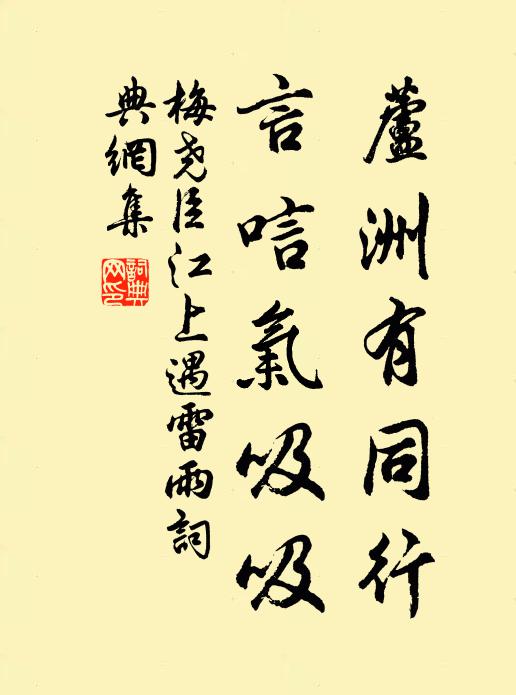 蘆洲有同行
言唁氣吸吸
梅尧臣江上遇雷雨詞
典網集
詞典
网印